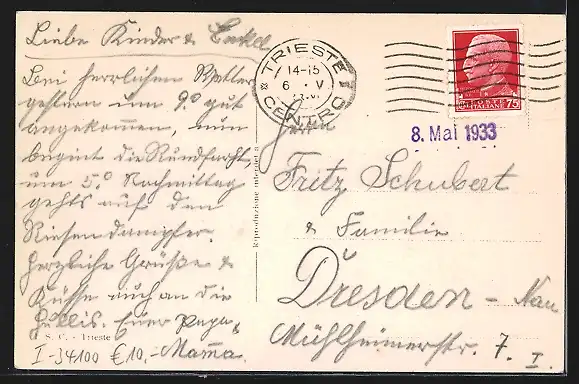 Liebe Kinder & Enkel
Bei herrlichem Wetter
gestern um 9° gut
angekommen, nun
beginnt die Rundfahrt,
um 5° Nachmittag
gehts auf den
Riesendampfer.
Herzliche Grüße &
Küsse auch an die
Euer Papa &
Mama.
S. C. - Trieste
I-34100 €10,-
Riproduzione interdetta
TRIESTE
14-15
6 V
CENTRO
POSTE ITALIANE 75
8. Mai 1933
Herrn
Fritz Schubert
& Familie
Dresden - Nau
Mühlheimerstr. 7. I.